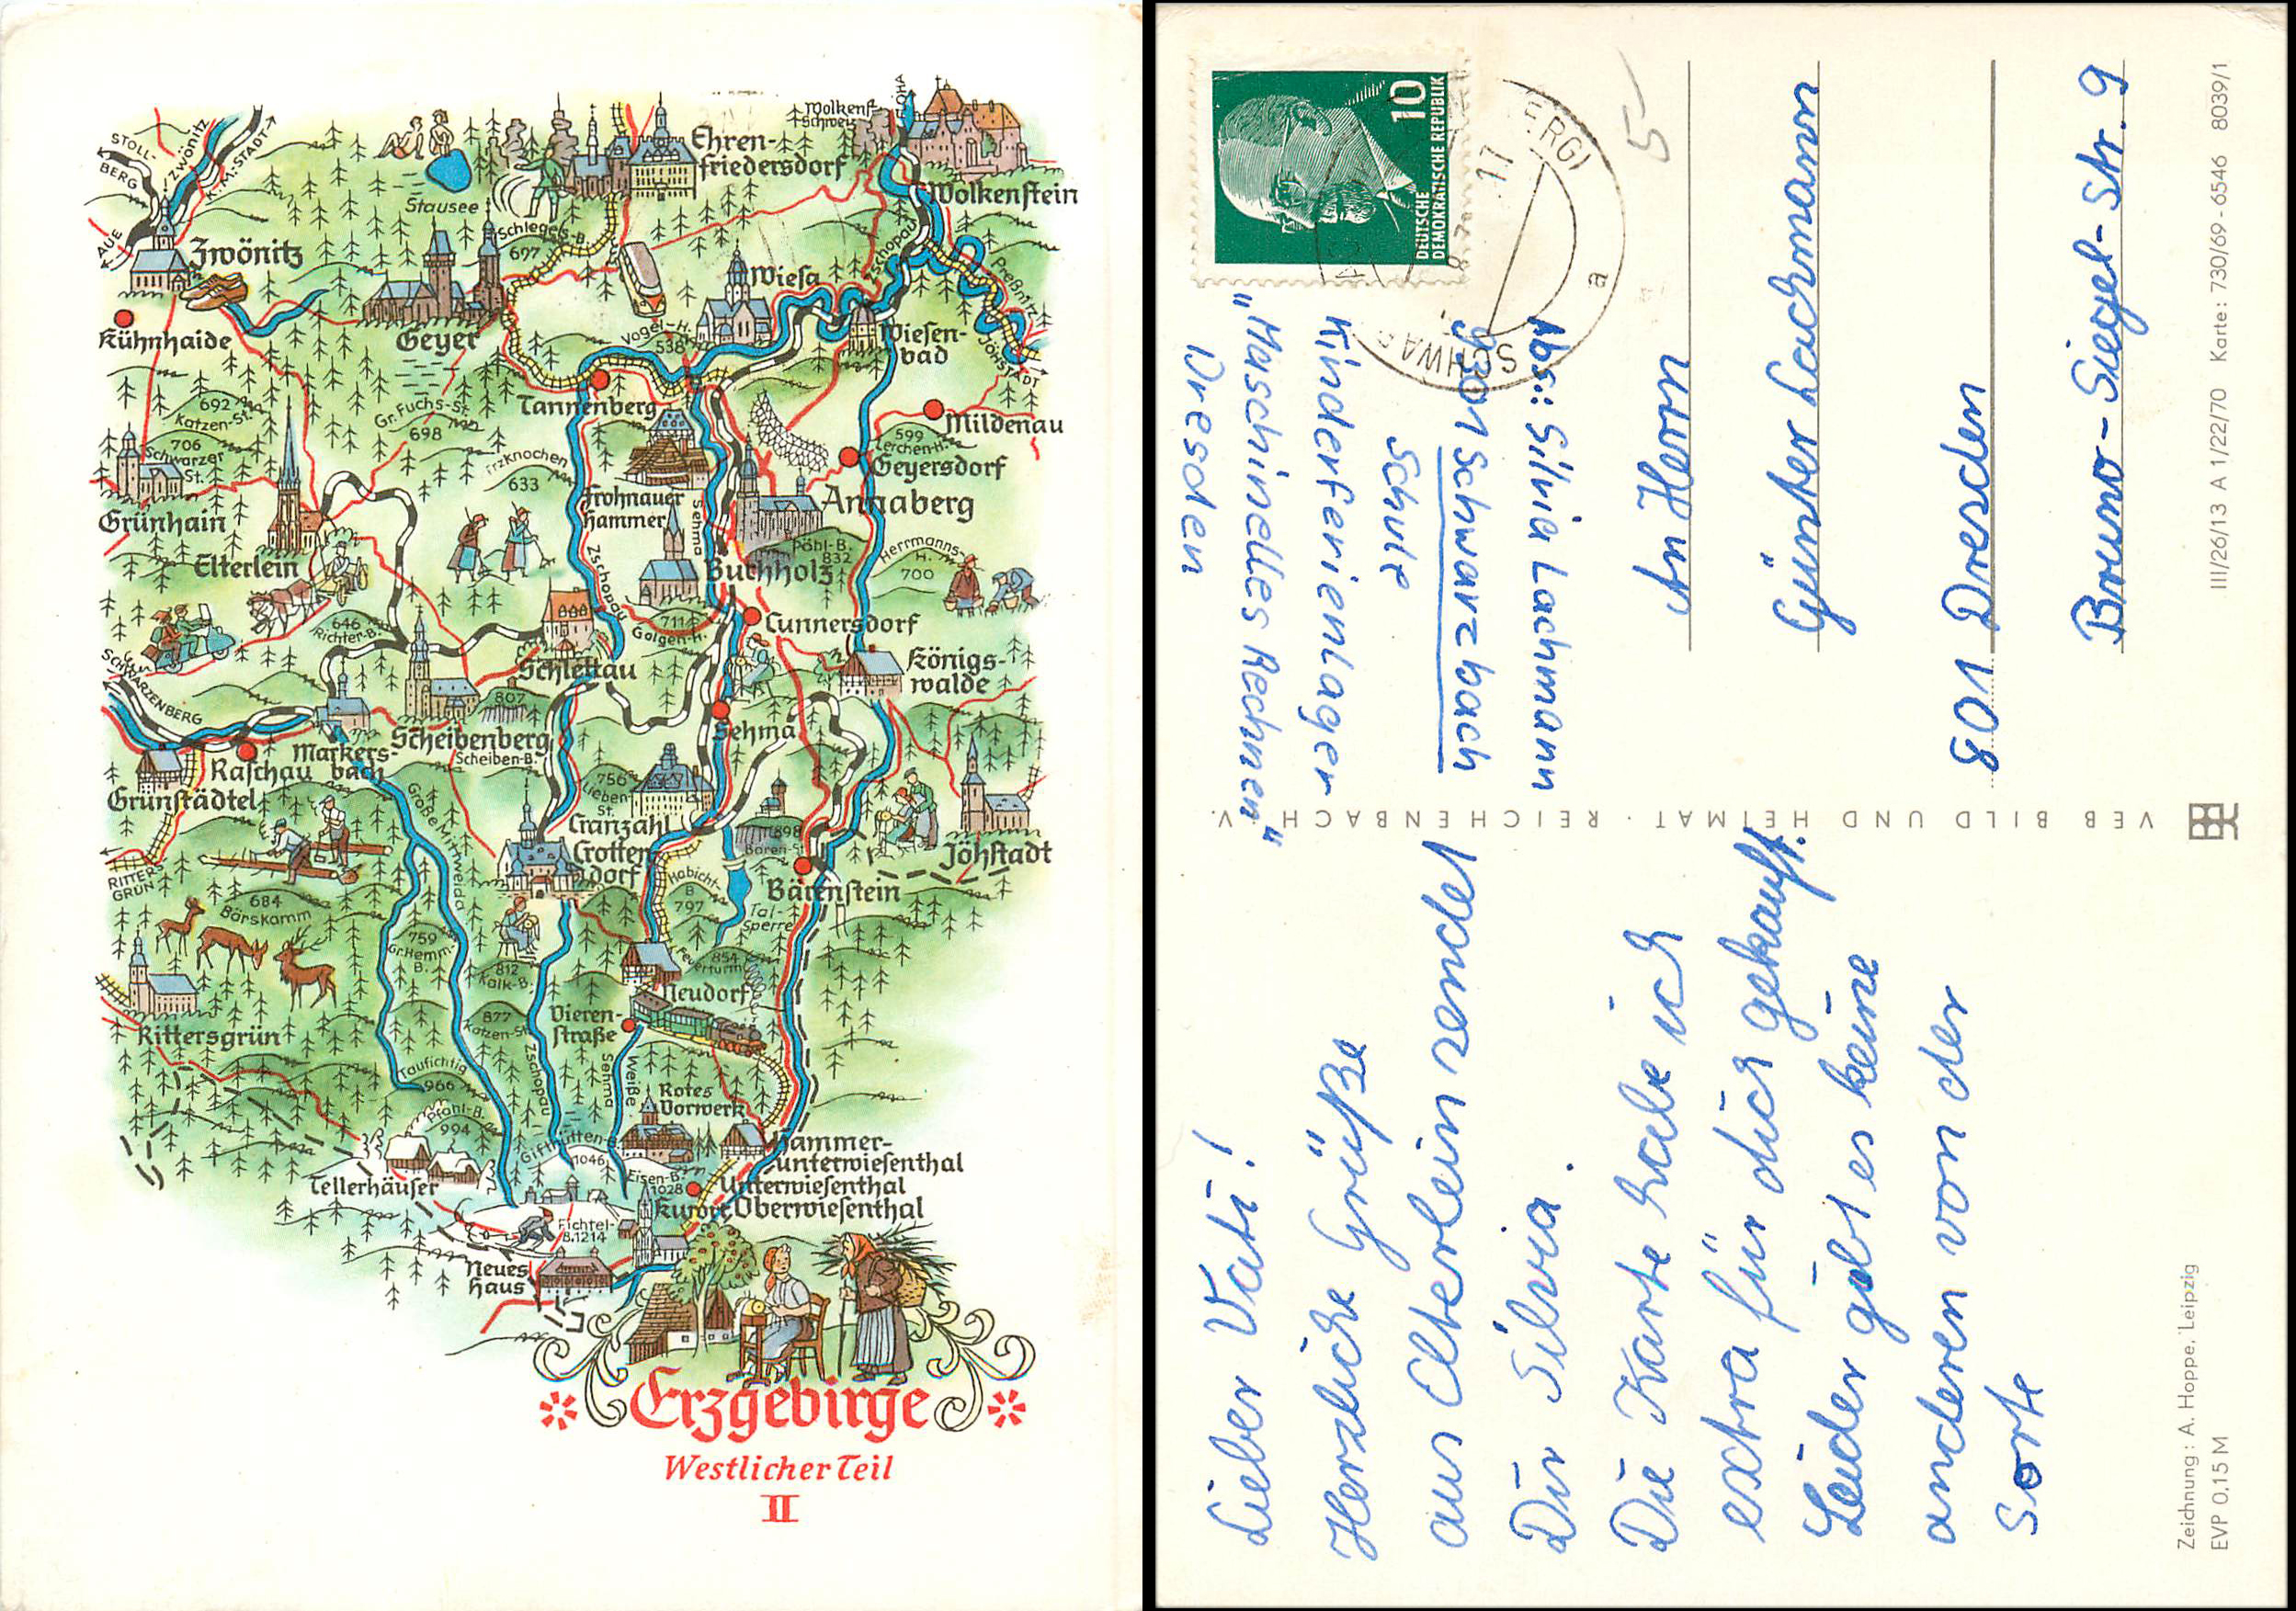 STOLL-
BERG
ZWÖNITZ
K.-M.-STADT
AUE
Zwönitz
Kühnhaide
Stausee
Ehren-
friedersdorf
Wolkenst.
Schweiz
FLÖHA
Wolkenstein
Schlegels-B.
697
Geyer
Wiesa
Zschopau
Preßnitz
Wiesen-
bad
JÖHSTADT
Vogel-H.
538
Tannenberg
692
Katzen-St.
706
Schwarzer
St.
Gr. Fuchs-St.
698
Mildenau
599
Lerchen-H.
Geyersdorf
Erzknochen
633
Frohnauer
Hammer
Sehma
Annaberg
Grünhain
Elterlein
Zschopau
Pöhl-B.
832
Buchholz
Herrmanns-
H.
700
646
Richter-B.
711
Galgen-H.
Cunnersdorf
Schlettau
Königs-
walde
SCHWARZENBERG
807
Scheibenberg
Scheiben-B.
Sehma
Markers-
bach
Raschau
Grünstädtel
756
Lieben-
St.
Cranzahl
Crotten-
dorf
898
Bären-St.
Jöhstadt
Bärenstein
RITTERS-
GRÜN
Große Mittweida
684
Bärskamm
Habicht-
B
797
Tal-
Sperre
759
Gr. Hemm-
B.
812
Kalk-B.
854
Feuerturm
Neudorf
Rittersgrün
877
Katzen-St.
Vieren-
straße
Zschopau
Sehma
Weiße
Taufichtig
966
Pfahl-B.
994
Rotes
Vorwerk
Gifthütten-B.
1046
Hammer-
unterwiesenthal
Eisen-B.
1028
Unterwiesenthal
Kurort Oberwiesenthal
Tellerhäuser
Fichtel-
B. 1214
Neues
Haus
Erzgebirge
Westlicher Teil
II
Lieber Vati!
Herzliche Grüße
aus Elterlein sendet
Dir Silvia.
Die Karte habe ich
extra für dich gekauft.
Leider gibt es keine
anderen von der
Sorte
Zeichnung: A. Hoppe, Leipzig
EVP 0,15 M
VEB BILD UND HEIMAT · REICHENBACH V.
10
DEUTSCHE
DEMOKRATISCHE REPUBLIK
17
a
5
Abs.: Silvia Lachmann
9301 Schwarzbach
Schule
Kinderferienlager
"Maschinelles Rechnen"
Dresden
An Herrn
Günter Lachmann
801 Dresden
Bruno-Siegel-Str. 9
III/26/13 A 1/22/70 Karte: 730/69-6546 8039/1